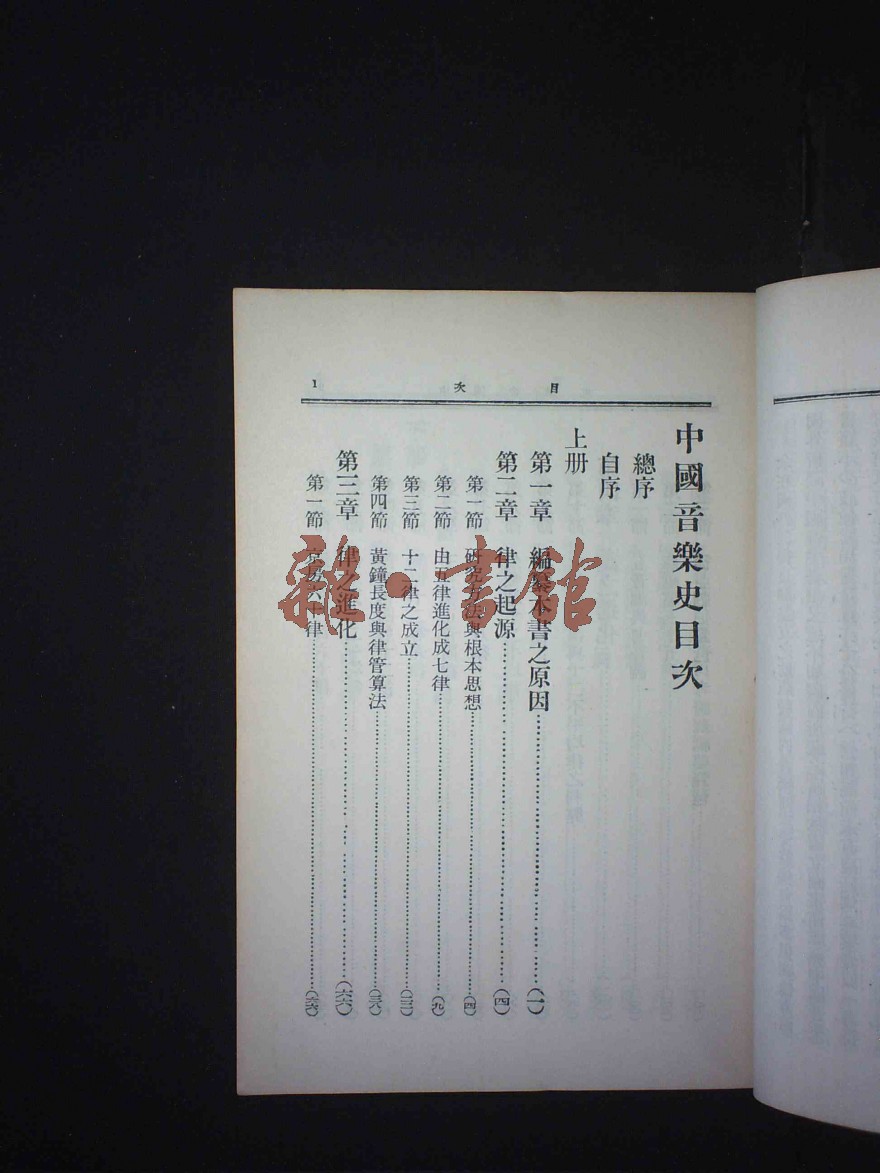 目次
1
中國音樂史目次
總序
自序
上册
第一章 編纂本書之原因 (一)
第二章 律之起源 (四)
第一節 研究方法與根本思想 (四)
第二節 由五律進化成七律 (九)
第三節 十二律之成立 (二一)
第四節 黃鐘長度與律管算法 (三八)
第三章 律之進化 (六六)
第一節 京房六十律
雜·書館